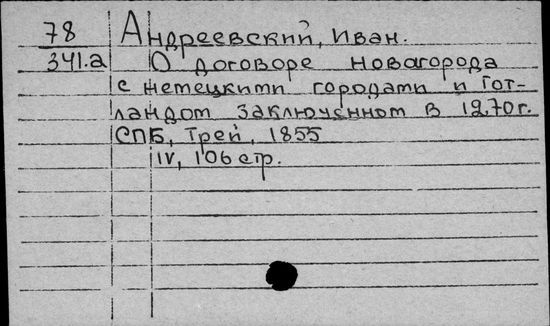 78 Андреевский, Иван.
341.а О договоре Новагорода
с немецкими городами и Гот-
ландом заключенном в 1270 г.
СПБ, Трей, 1855
IV, 106 стр.